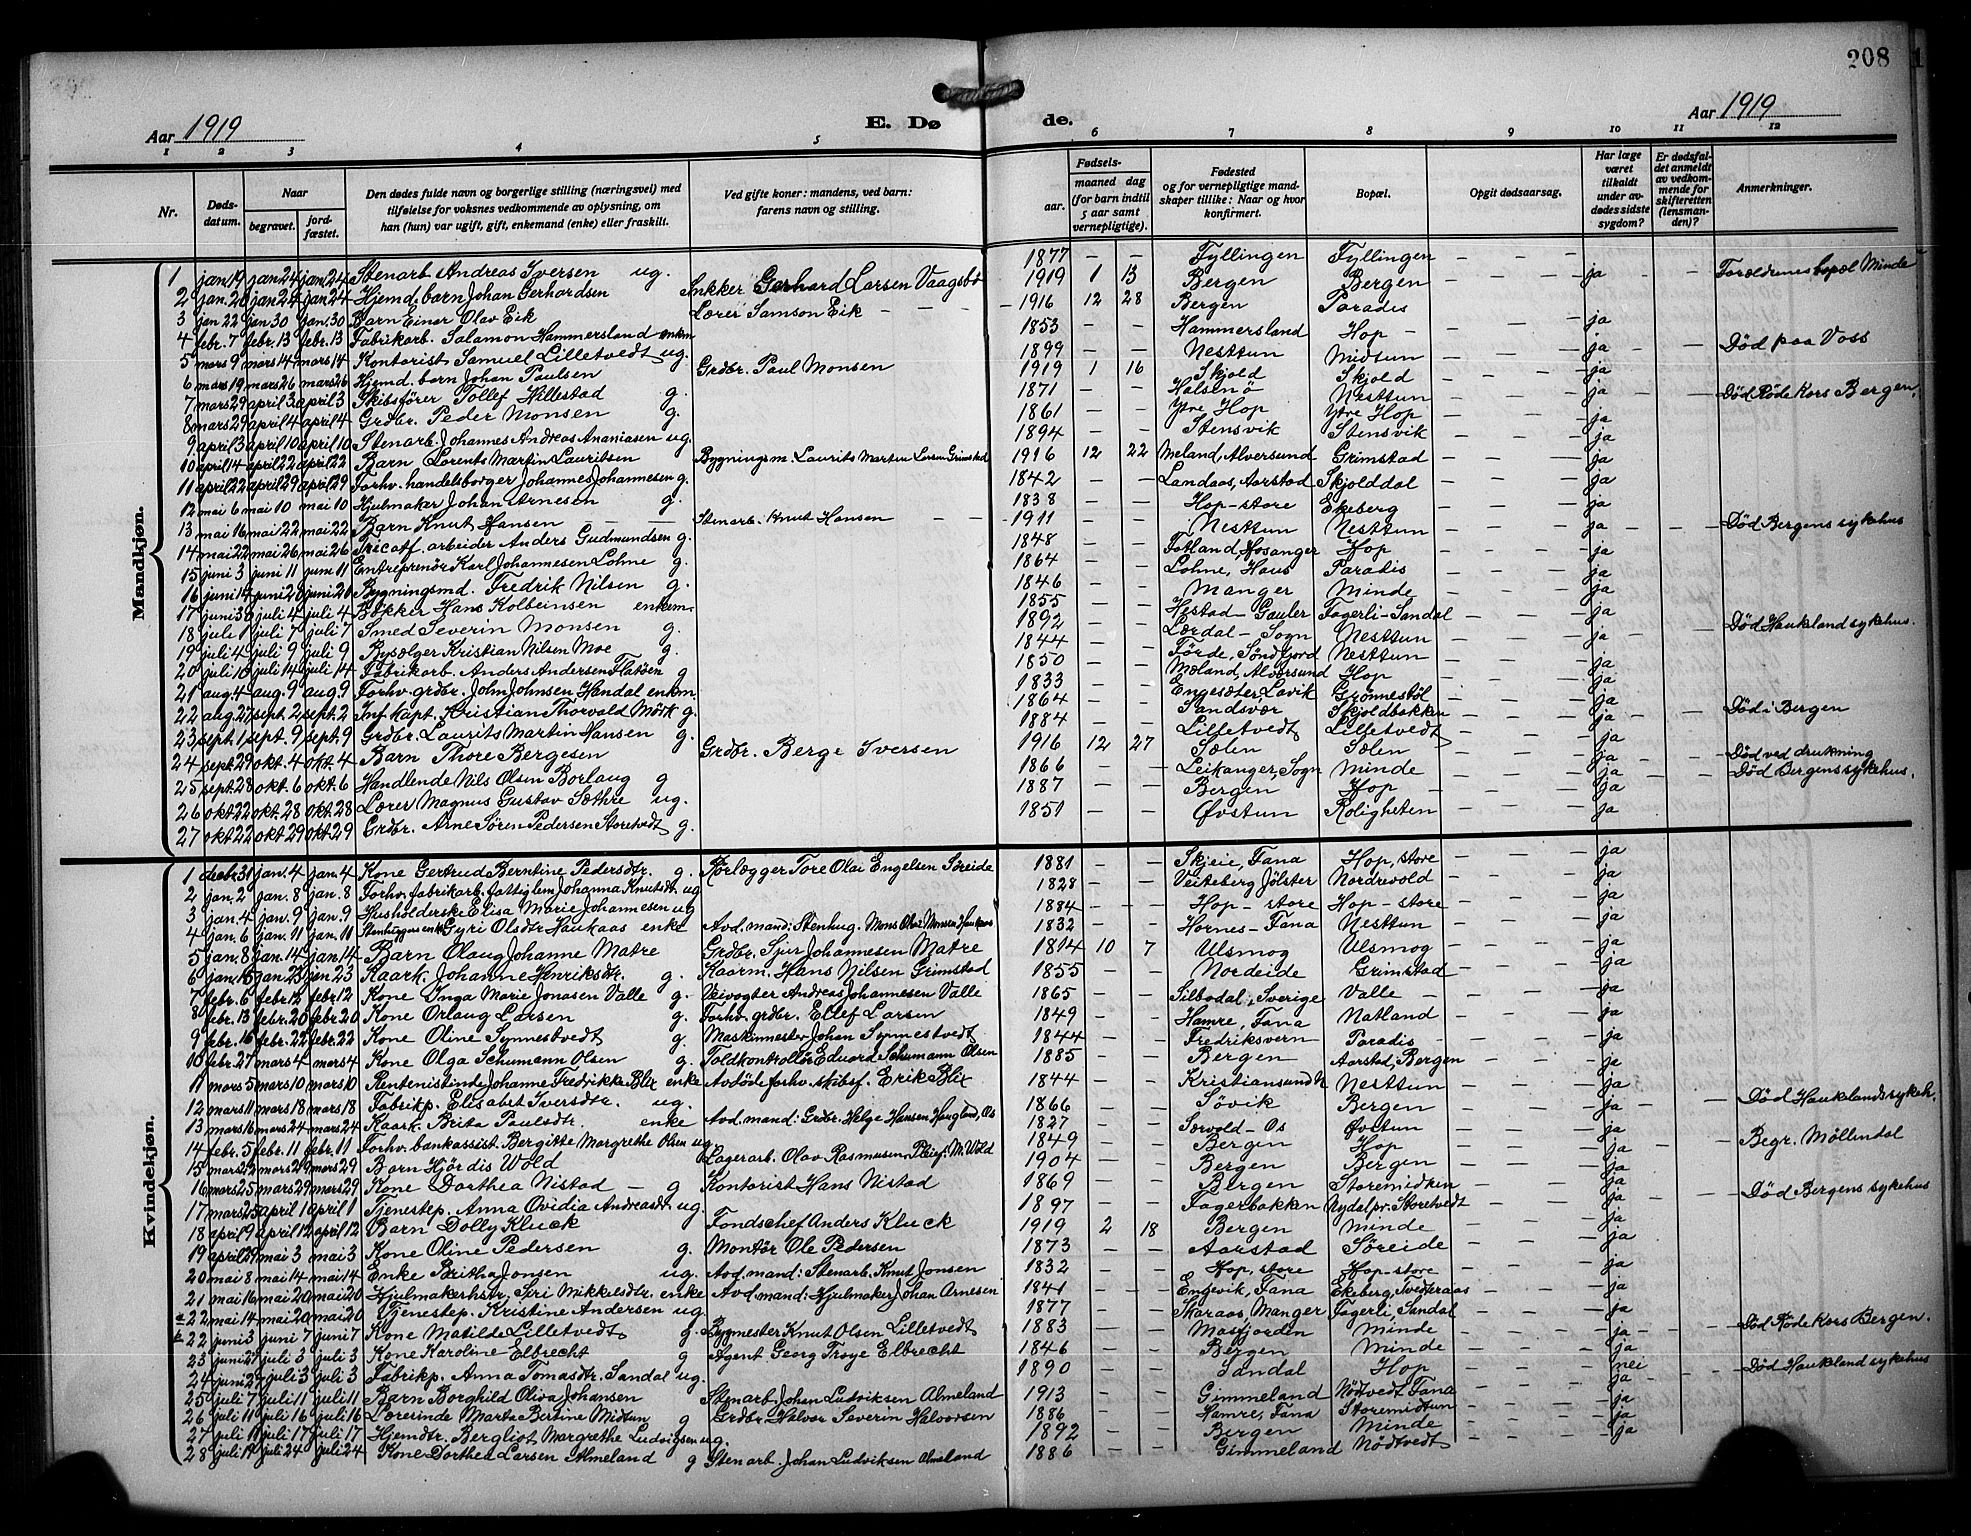 208
Aar 1919
E. Døde.
Aar 1919
1 2 3 4 5 6 7 8 9 10 11 12
Nr.
Dødsdatum.
Naar
begravet.
jordfæstet.
Den dødes fulde navn og borgerlige stilling (næringsvei) med
tilføielse for voksnes vedkommende av oplysning, om
han (hun) var ugift, gift, enkemand (enke) eller fraskilt.
Ved gifte koner: mandens, ved barn:
farens navn og stilling.
Fødsels-
aar.
maaned dag
(for barn indtil
5 aar samt
vernepligtige).
Fødested
og for vernepligtige mand-
skaper tillike: Naar og hvor
konfirmert.
Bopæl.
Opgit dødsaarsag.
Har læge
været
tilkaldt
under av-
dødes sidste
sygdom?
Er dødsfal-
det anmeldt
av vedkom-
mende for
skifteretten
(lensman-
den)?
Anmerkninger.
Mandkjøn.
1 jan 19 jan 24 jan 24 Stenarb. Andreas Iversen ug. 1877 — — Fyllingen Fyllingen
2 jan. 20 jan 24 jan 24 Hjemd. barn Johan Gerhardsen Snkker Gerhard Larsen Vaagsbö 1919 1 13 Bergen Bergen ja Forældrenes bopæl Minde
3 jan 22 jan 30 jan. 30 Barn Einar Olav Eik Lærer Samson Eik 1916 12 28 Bergen Paradis
4 febr. 7 febr. 13 febr. 13 Fabrikarb. Salomon Hammersland enkm 1853 — Hammersland Hop ja
5 mars 9 mars 14 mars 14 Kontorist Samuel Lilletvedt ug. 1899 — — Nesttun Midtun ja Död paa Voss
6 mars 19 mars 26 mars 26 Hjemd. barn Johan Paulsen Grdbr. Paul Monsen 1919 1 16 Skjold Skjold ja
7 mars 29 april 3 april 3 Skibsfører Tollef Hillestad g. 1871 — — Halsenö Nesttun Död Röde Kors Bergen.
8 mars 29 april 4 april 4 Grdbr. Peder Monsen g. 1861 — — Ytre Hop Ytre Hop ja
9 april 3 april 10 april 10 Stenarb. Johannes Andreas Ananiasen ug. 1894 — — Stensvik Stensvik ja
10 april 14 april 22 april 22 Barn Lorents Martin Lauritsen Bygningsm. Laurits Martin Larsen Grimstad 1916 12 22 Meland, Alversund Grimstad ja
11 april 22 april 29 april 29 Forhv. handelsborger Johannes Johannesen g. 1842 — — Landaas, Aarstad Skjolddal ja
12 mai 6 mai 10 mai 10 Hjulmaker Johan Arnesen g. 1838 — — Hop-store Ekeberg ja
13 mai 16 mai 22 mai 22 Barn Knut Hansen Stenarb. Knut Hansen 1911 — — Nesttun Nesttun ja Död Bergens sykehus
14 mai 22 mai 26 mai 26 Tricotf. arbeider Anders Gudmundsen g. 1848 — — Fotland, Hosanger Hop ja
15 juni 3 juni 11 juni 11 Entreprenör Karl Johannesen Lohne g. 1864 — — Lohne, Haus Paradis ja
16 juni 14 juni 20 juni 20 Bygningsmd. Fredrik Nilsen g. 1846 — — Manger Minde ja
17 juni 30 juli 4 juli 4 Bakker Hans Kolbeinsen enkem. 1855 — — Hestad - Gauler Fagerli-Sandal ja
18 juli 1 juli 7 juli 7 Smed Severin Monsen g. 1892 — — Lærdal - Sogn Nesttun ja Död Haukland sykehus.
19 juli 4 juli 9 juli 9 Bysælger Kristian Nilsen Moe g. 1844 — — Förde, Söndfjord Nesttun
20 juli 10 juli 14 juli 14 Fabrikarb. Anders Andersen Flatöen g 1850 — — Meland, Alversund Hop ja
21 aug. 4 aug. 9 aug. 9 Forhv. grdbr. John Johnsen Handal enkm 1833 — — Engesæter Lavik Grönnestöl ja
22 aug. 27 sept. 2 sept. 2 Inf. kapt. Kristian Thorvald Mörk g. 1864 — — Sandsvær Skjoldbakken ja Död i Bergen
23 sept. 1 sept. 9 sept. 9 Grdbr. Laurits Martin Hansen g. 1884 — — Lilletvedt Lilletvedt ja
24 sept. 29 okt. 4 okt. 4 Barn Thore Bergesen Grdbr. Berge Iversen 1916 12 27 Sælen Sælen ja Död ved drukning
25 sept. 28 okt. 6 okt. 6 Handlende Nils Olsen Borlaug g 1866 — — Leikanger, Sogn Minde ja Död Bergens sykehus.
26 okt. 22 okt. 28 okt. 28 Lærer Magnus Gustav Sæthre ug. 1887 — — Bergen Hop ja
27 okt. 22 okt. 29 okt. 29 Grdbr. Arne Sören Pedersen Storetvedt g. 1851 — — Øvstun Roligheten ja
Kvindekjøn.
1 decbr. 31 jan. 4 jan. 4 Kone Gertrud Berntine Pedersdtr. g. Rörlægger Tore Olai Engelsen Söreide 1881 — — Skjeie, Fana Hop, store ja
2 jan. 2 jan. 8 jan. 8 Forhv. fabrikarb. fattiglem Johanna Knutsdt. ug 1828 — — Veiteberg Jölster Nordrevold ja
3 jan. 4 jan. 9 jan. 9 Husholderske Elisa Marie Johannesen ug 1884 — — Hop-store Hop-store ja
4 jan. 6 jan. 11 jan. 11 Stenhuggers enke Gyri Olsdtr Haukaas enke Avd. mand: Stenhug. Mons Olai Monsen Haukaas 1832 — — Hornes-Fana Nesttun ja
5 jan. 8 jan. 14 jan. 14 Barn Olaug Johanne Matre Grdbr. Sjur Johannesen Matre 1814 10 7 Ulsmog Ulsmog ja
6 jan. 15 jan 23 jan 23 Kaark. Johanne Henriksdtr. g. Kaarm. Hans Nilsen Grimstad 1855 — — Nordeide Grimstad ja
7 febr. 6 febr. 12 febr. 12 Kone Inga Marie Jonasen Valle g. Veivogter Andreas Johannesen Valle 1865 — — Silbodal, Sverige Valle ja
8 febr. 13 febr. 20 febr. 20 Kone Orlaug Larsen g. Forhv. grdbr. Ellef Larsen 1849 — — Hamre, Fana Natland ja
9 febr. 16 febr. 22 febr. 22 Kone Oline Synnestvedt g. Maskinmester Johan Synnestvedt 1844 — — Fredriksvern Paradis ja
10 febr. 27 mars 4 mars 4 Kone Olga Schumann Olsen g. Toldkontrollör Eduard Schumann Olsen 1885 — — Bergen Aarstad, Bergen ja
11 mars 5 mars 10 mars 10 Rentenistinde Johanne Fredrikke Blix enke Avdöde forhv. skibsf. Erik Blix 1844 — — Kristiansund N Nesttun ja
12 mars 11 mars 18 mars 18 Fabrikp. Elisabet Iversdtr. ug. 1866 — — Sövik Bergen ja Död Hauklands sykeh.
13 mars 16 mars 24 mars 24 Kaark. Brita Paulsdtr. enke Avd. mand: Grdbr. Helge Hansen Haugland, Os 1827 — — Særvold-Os Øvstun ja
14 febr. 5 febr. 11 febr. 11 Forhv. bankassist. Bergitte Margrethe Olsen ug 1849 — — Bergen Hop ja Begr. Möllendal
15 mars 22 mars 29 mars 29 Barn Hjördis Wold Lagerarb. Olav Rasmusen, Pleief. M. Wold 1904 — — Bergen Bergen ja
16 mars 25 mars 29 mars 29 Kone Dorthea Nistad g Kontorist Hans Nistad 1869 — — Bergen Storemidken ja
17 mars 25 april 1 april 1 Tjenestep. Anna Ovidia Andreasdt ug. 1897 — — Fagerbakken Nydal pr. Storetvedt ja Död Bergens sykehus
18 april 9 april 12 april 12 Barn Dolly Kluck Fondschef Anders Kluck 1919 2 18 Bergen Minde ja
19 april 29 mai 3 mai 3 Kone Oline Pedersen g. Montör Ole Pedersen 1873 — — Aarstad Söreide ja
20 mai 8 mai 14 mai 14 Enke Britha Jonsen ug. Avd. mand: Stenarb. Knut Jonsen 1832 — — Hop, store Hop-store ja
21 mai 16 mai 20 mai 20 Hjulmakerhstr. Siri Mikkelsdtr. enke Avd. mand: Hjulmaker Johan Arnesen 1841 — — Engevik, Fana Ekeberg, Tvedteraas ja
a 22 mai 14 mai 20 mai 20 Tjenestep. Kristine Andersen ug. 1877 — — Skaraas, Manger Fagerli, Sandal ja
b 22 juni 3 juni 7 juni 7 Kone Matilde Lilletvedt g. Bygmester Knut Olsen Lilletvedt 1883 — — Masfjorden Minde ja Död Röde Kors Bergen.
23 juni 27 juli 3 juli 3 Kone Karoline Elbrecht g Agent Georg Troye Elbrecht 1846 — — Bergen Minde ja
24 juni 27 juli 3 juli 3 Fabrikp. Anna Tomasdtr. Sandal ug. 1890 — — Sandal Hop nei Död Haukland sykehus
25 juli 7 juli 11 juli 11 Barn Borghild Oliva Johansen Stenarb. Johan Ludviksen Almeland 1913 — — Gimmeland Nödtvedt Fana ja
26 juli 11 juli 16 juli 16 Lærerinde Marta Bertine Midtun g Grdbr. Halvor Severin Halvorsen 1886 — — Hamre, Fana Storemidtun ja
27 juli 11 juli 17 juli 17 Hjemdtr. Bergliot Margrethe Ludvigsen ug. 1892 — — Bergen Minde ja
28 juli 19 juli 24 juli 24 Kone Dorthea Larsen Almeland g Stenarb. Johan Ludviksen Almeland 1886 — — Gimmeland Nödtvedt ja